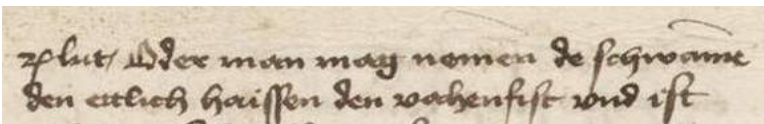 plut / Oder man mag nemen de schwamē
den ettlich haissen den vochenfist vnd ist